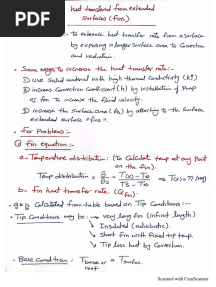 PDF
heat transferred from extended
surfaces (fins).
- to enhance heat transfer rate from a surface
by exposing a larger surface area to convection
and radiation.
• Some ways to increase the heat transfer rate:-
① use solid material with high thermal conductivity (k↑)
② increase convection coefficient (h) by installation of pump
or fan to increase the fluid velocity.
③ increase the surface area (As) by attaching to the surface
extended surface "fins".
• for Problems:-
① fin equation:-
a- Temperature distribution:- (to calculate temp at any point
on the fin).
Temp distribution = θ/θb = T(x) - T∞ / Tb - T∞ ⇒ T(x) = ?? (eq)
b- fin heat transfer rate (qfin).
• calculated from table based on Tip Conditions:-
- Tip Conditions may be → very long fin (infinit length)
↳ Insulated (adiabatic).
↳ Short fin with fixed tip temp.
↳ Tip loss heat by convection.
- Base Condition: Tbase or root = Tsurface
CS Scanned with CamScanner